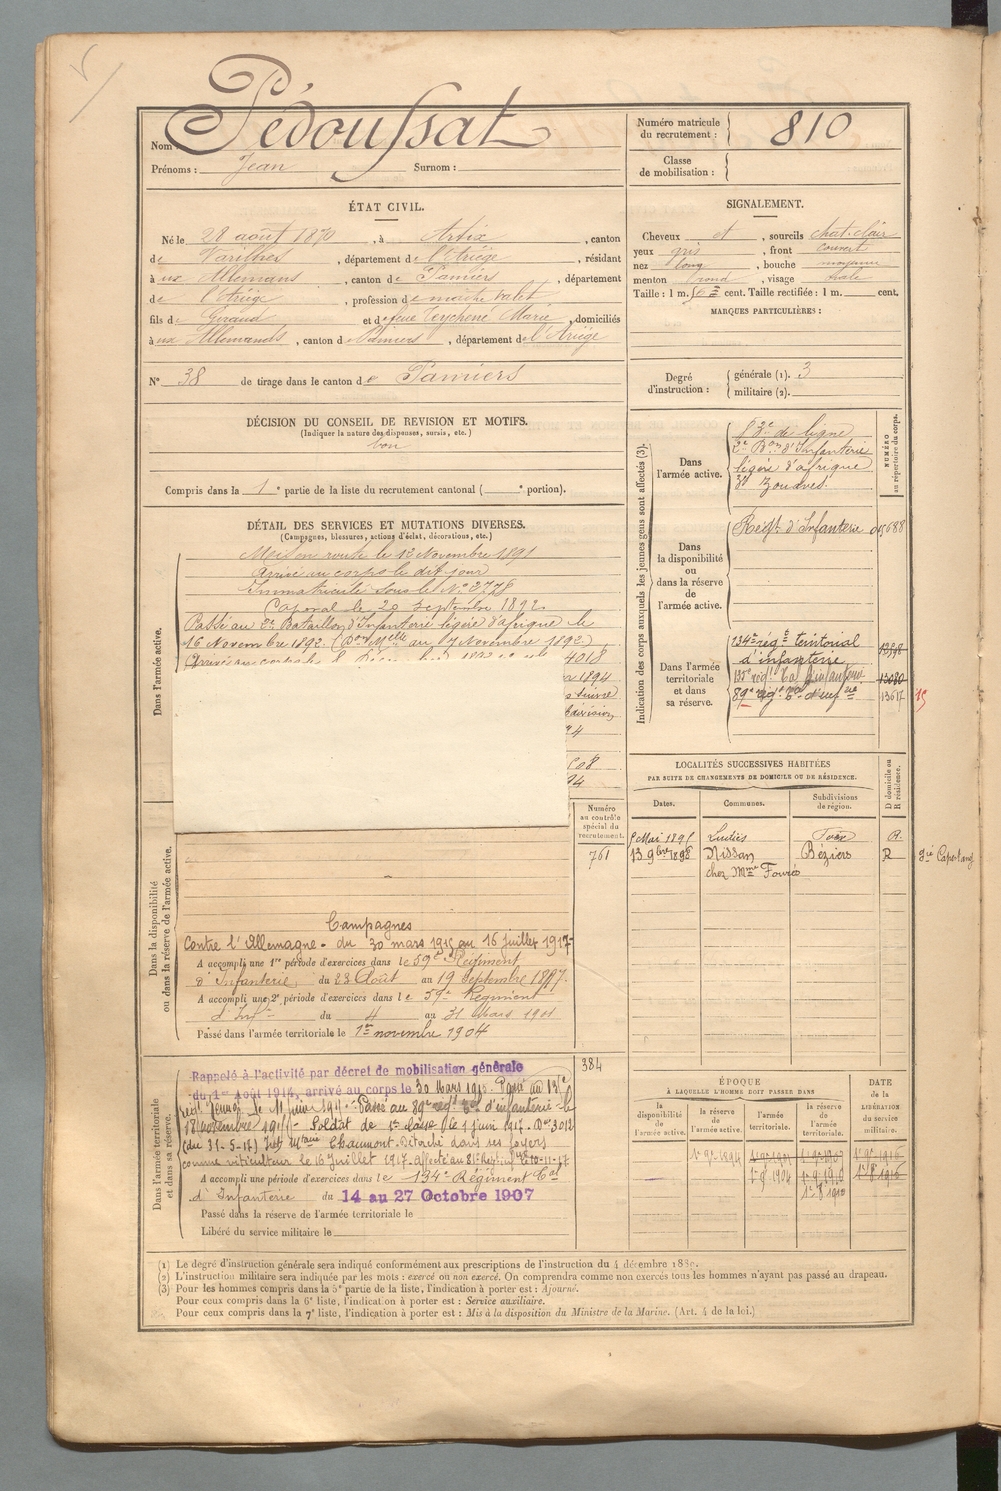 Nom Pédoussat
Prénoms : Jean Surnom :
Numéro matricule du recrutement : 810
Classe de mobilisation :
ÉTAT CIVIL.
Né le 28 août 1870, à Artix, canton
de Varilhes, département de l'Ariège, résidant
à ux Allemans, canton de Pamiers, département
de l'Ariège, profession de
fils de Géraud et de feue Teychené Marie, domiciliés
à ux Allemands, canton de Pamiers, département de l'Ariège
N° 38 de tirage dans le canton de Pamiers
DÉCISION DU CONSEIL DE REVISION ET MOTIFS.
(Indiquer la nature des dispenses, sursis, etc.)
bon
Compris dans la 1e partie de la liste du recrutement cantonal ( e portion).
DÉTAIL DES SERVICES ET MUTATIONS DIVERSES.
(Campagnes, blessures, actions d'éclat, décorations, etc.)
Dans l'armée active.
Mis en route le 12 Novembre 1891
Arrivé au corps le dit jour
Immatriculé sous le N°
Caporal le 20 Septembre 1892
Passé au 2e Bataillon d'Infanterie légère d'afrique le
16 Novembre 1892.
4018
1894
Dans la disponibilité ou dans la réserve de l'armée active.
Numéro au contrôle spécial du recrutement.
761
Campagnes
Contre l'Allemagne - du 30 mars 1915 au 16 juillet 1917
A accompli une 1re période d'exercices dans le 59e Régiment
d'Infanterie, du 23 Août au 19 Septembre 1897.
A accompli une 2e période d'exercices dans le 59e Régiment
d'Infie du 4 au 31 Mars 1901
Passé dans l'armée territoriale le 1er novembre 1904
Dans l'armée territoriale et dans sa réserve.
384
Rappelé à l'activité par décret de mobilisation générale
du 1er août 1914, arrivé au corps le 30 Mars 1915. Passé au
Passé au 89e régt tal d'infanterie le
Soldat de 1e classe le 1 juin 1917.
(du 31-5-17) Chaumont. Détaché dans ses foyers
comme viticulteur le 16 Juillet 1917.
A accompli une période d'exercices dans le 134e Régiment tal
d'Infanterie du 14 au 27 Octobre 1907
Passé dans la réserve de l'armée territoriale le
Libéré du service militaire le
SIGNALEMENT.
Cheveux et, sourcils chat. clair
yeux gris, front couvert
nez long, bouche moyenne
menton rond, visage ovale
Taille : 1 m. cent. Taille rectifiée : 1 m. cent.
MARQUES PARTICULIÈRES :
Degré d'instruction : générale (1). 3
militaire (2).
Indication des corps auxquels les jeunes gens sont affectés (3).
NUMÉRO au répertoire du corps.
Dans l'armée active.
de ligne
2e Bon d'Infanterie
légère d'afrique
Zouaves.
Dans la disponibilité ou dans la réserve de l'armée active.
Régt d'Infanterie
Dans l'armée territoriale et dans sa réserve.
134e régt territorial
d'infanterie
135e régt tal d'infanterie
89e
LOCALITÉS SUCCESSIVES HABITÉES
PAR SUITE DE CHANGEMENTS DE DOMICILE OU DE RÉSIDENCE.
Dates. Communes. Subdivisions de région. D domicile ou R résidence.
Mai 1895 Ludiès Foix R.
13 9bre 1898 Nissan Béziers R
chez Mme
ÉPOQUE
À LAQUELLE L'HOMME DOIT PASSER DANS
la disponibilité de l'armée active. la réserve de l'armée active. l'armée territoriale. la réserve de l'armée territoriale.
DATE de la LIBÉRATION du service militaire.
(1) Le degré d'instruction générale sera indiqué conformément aux prescriptions de l'instruction du 4 décembre 1889.
(2) L'instruction militaire sera indiquée par les mots : exercé ou non exercé. On comprendra comme non exercés tous les hommes n'ayant pas passé au drapeau.
(3) Pour les hommes compris dans la 5e partie de la liste, l'indication à porter est : Ajourné.
Pour ceux compris dans la 6e liste, l'indication à porter est : Service auxiliaire.
Pour ceux compris dans la 7e liste, l'indication à porter est : Mis à la disposition du Ministre de la Marine. (Art. 4 de la loi.)